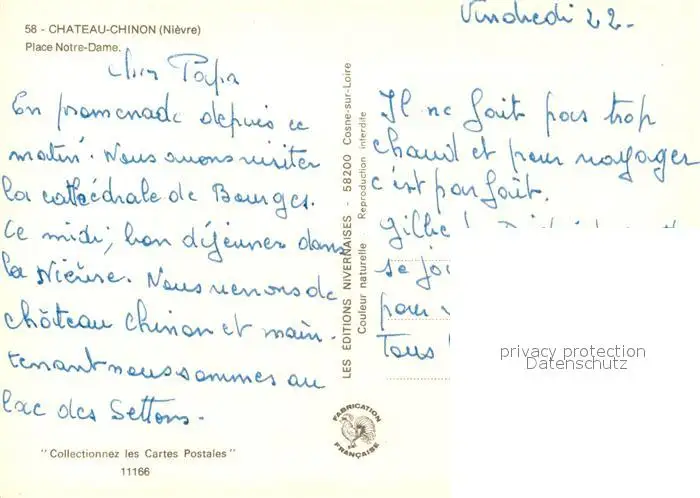 58 - CHATEAU-CHINON (Nièvre)
Place Notre-Dame.
Vendredi 22-
Cher Papa
En promenade depuis ce
matin. Nous avons visiter
la cathédrale de Bourges.
Ce midi, bon déjeuner dans
la Nièvre. Nous venons de
château Chinon et main-
tenant nous sommes au
lac des Settons.
Il ne fait pas trop
chaud et pour voyager
c'est parfait.
se
pour
Tous
LES EDITIONS NIVERNAISES - 58200 Cosne-sur-Loire
Couleur naturelle Reproduction interdite
FABRICATION
FRANÇAISE
"Collectionnez les Cartes Postales"
11166
privacy protection
Datenschutz